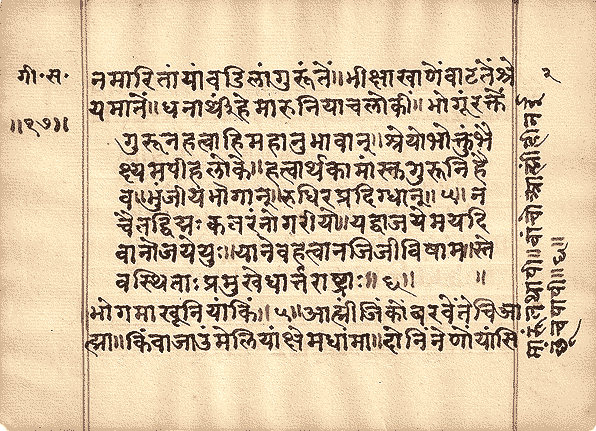 गी॰स॰
॥१७॥
२
न मारितां यां वडिलां गुरूंनें॥ भीक्षा खाणें वाटतें श्रे
यमानें॥ धनार्थी हे मारुनि या च लोकीं॥ भोगूं रक्तें
गुरूनहत्वाहिमहानुभावान्॥ श्रेयोभोक्तुंभै
क्ष्यमपीहलोके॥ हत्वार्थकामांस्तुगुरूनिहै
व॥ भुंजीयभोगान्॥ रुधिरप्रदिग्धान्॥ ५॥ न
चैतद्विद्मः कतरन्नोगरीयो॥ यद्वाजयेमयदि
वानोजयेयुः॥ यानेवहत्वानजिजीविषाम॥ स्ते
वस्थिताः प्रमुखेधार्त्तराष्ट्राः॥ ६॥ ॥
भोग माखूनियां किं॥ ५॥ आह्मां जिंको बरवें नेंचि आ
ह्मा॥ किंवा जाउं मेलियां क्षेमधामा॥ हो निनेणों यांसि